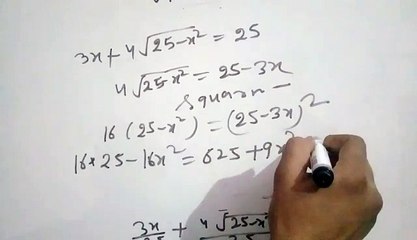 3x + 4√25-x² = 25
4√25-x² = 25-3x
Squaren -
16 (25-x²) = (25-3x)²
16*25 - 16x² = 625 + 9x²
3x + 4√25-x²